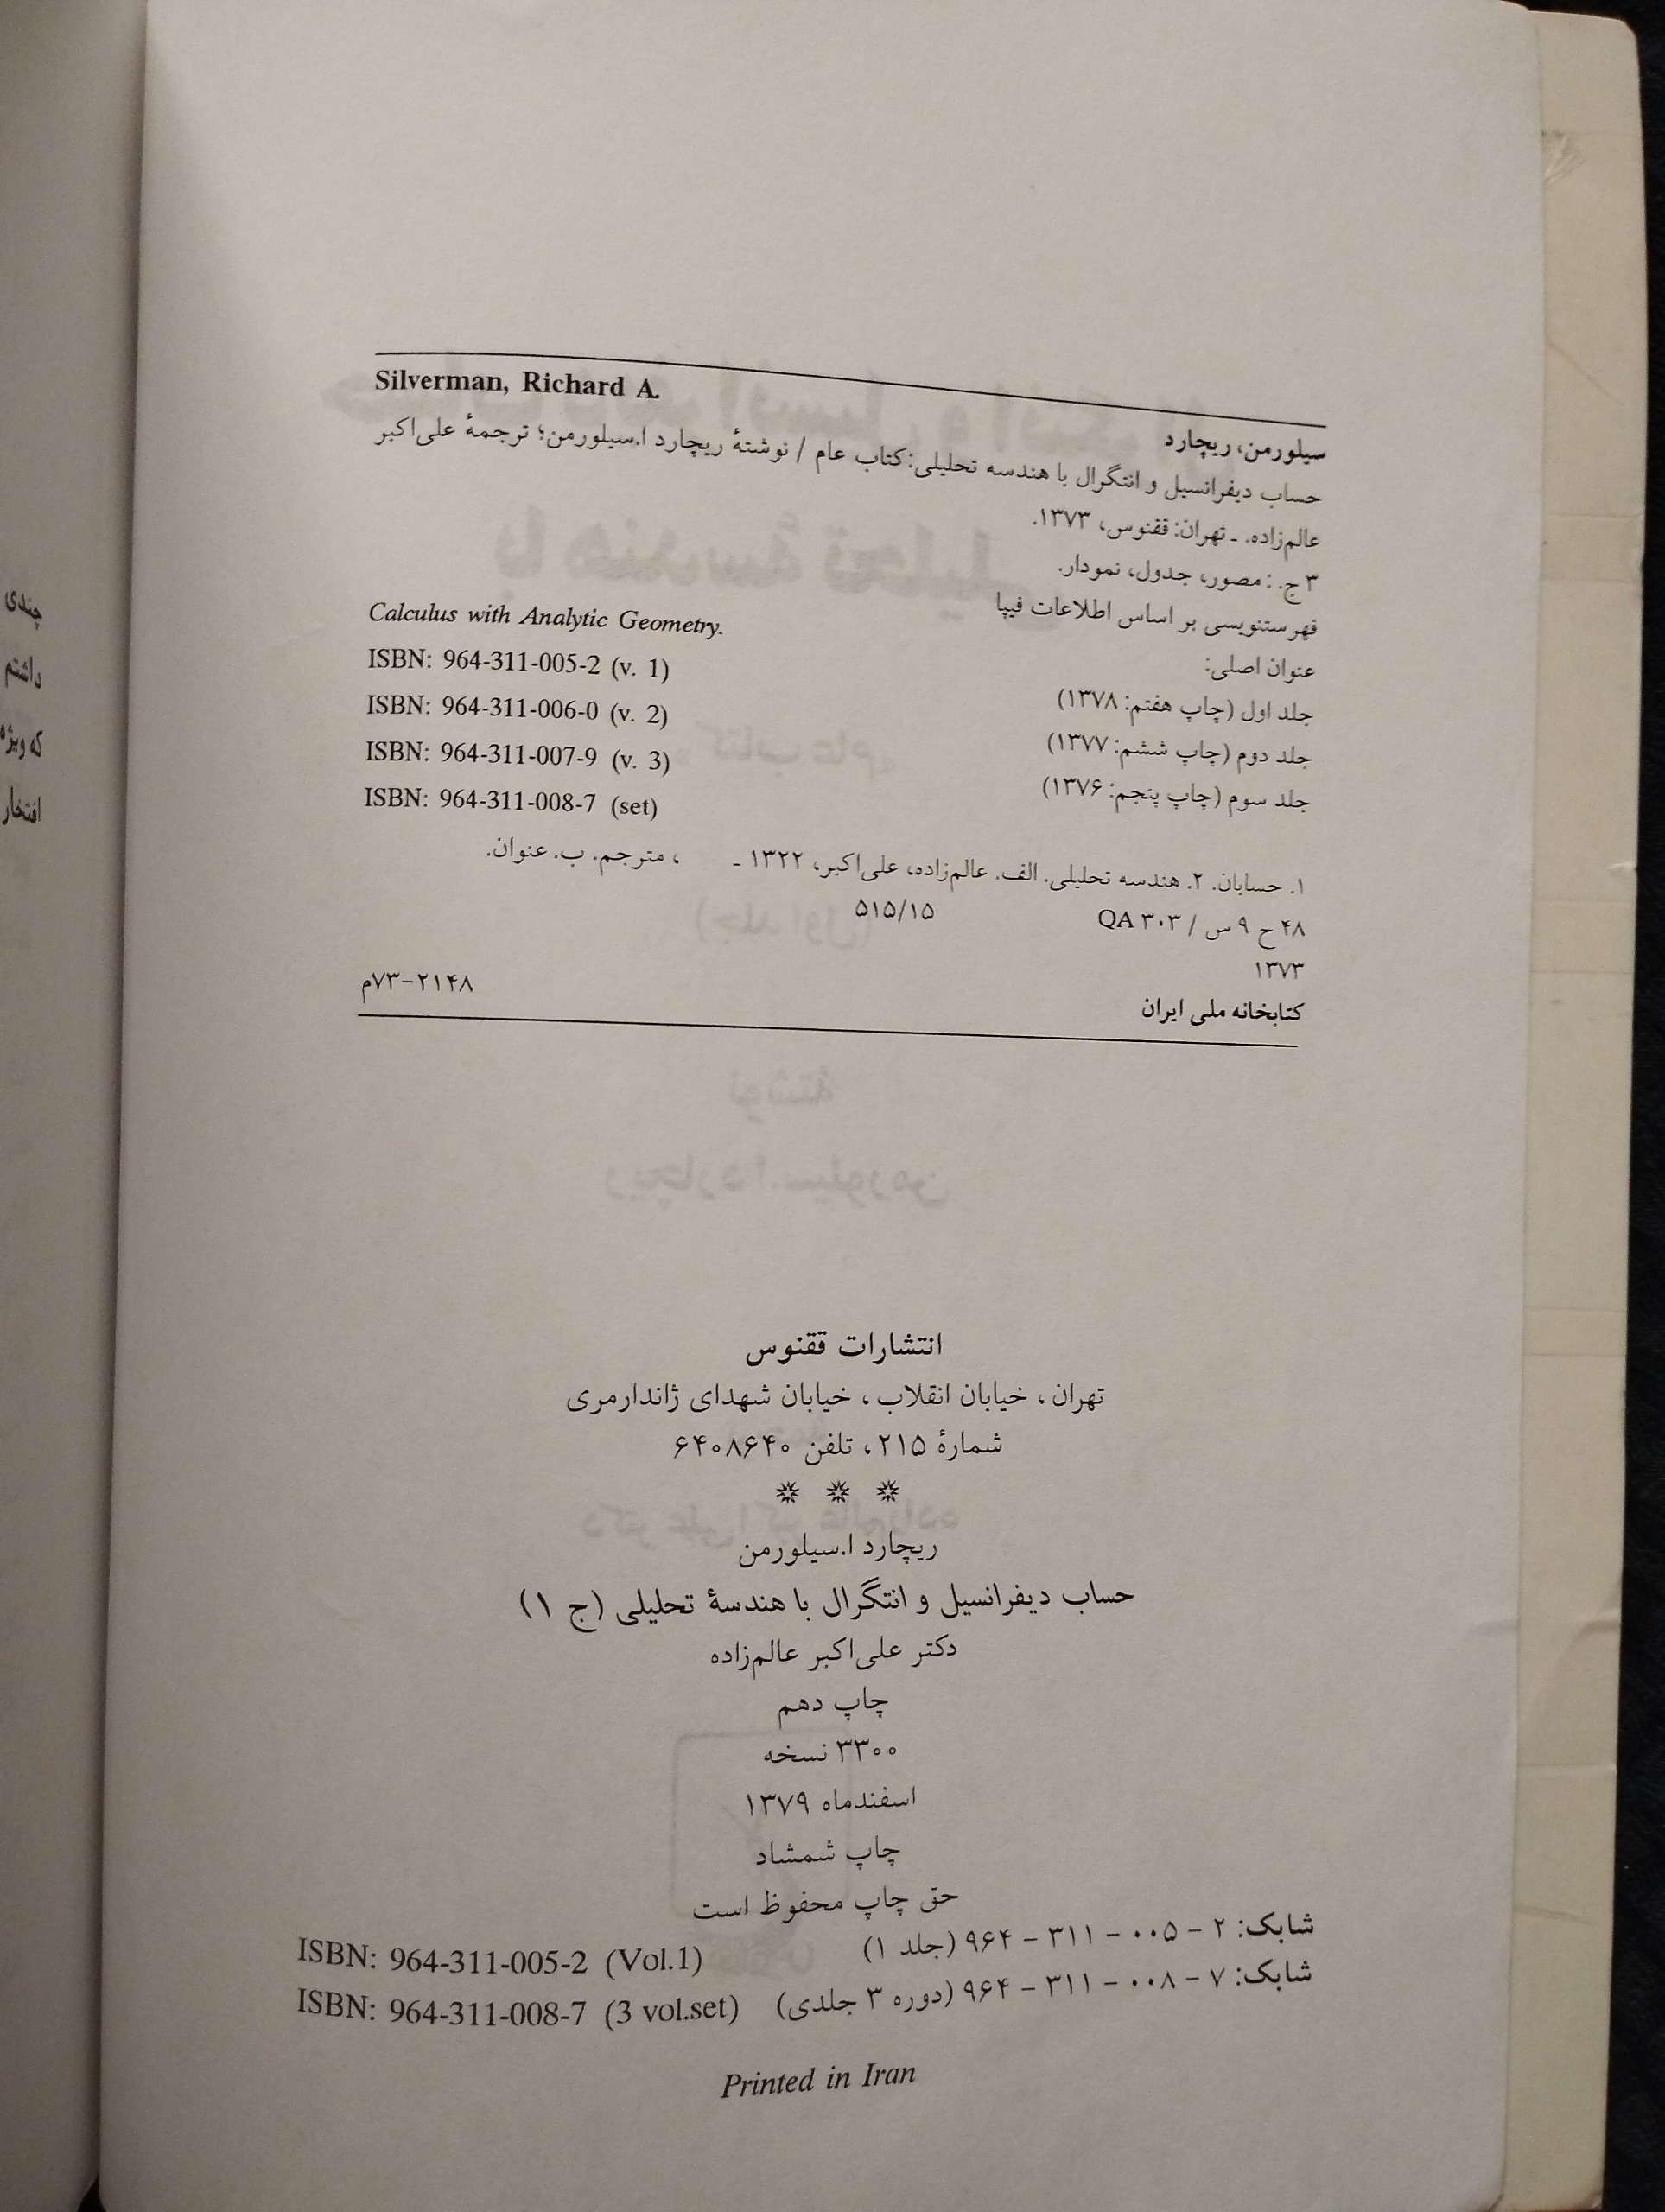 Silverman, Richard A.
سیلورمن، ریچارد
حساب دیفرانسیل و انتگرال با هندسه تحلیلی:کتاب عام / نوشتهٔ ریچارد ا.سیلورمن؛ ترجمهٔ علی‌اکبر
عالم‌زاده. ـ تهران: ققنوس، ۱۳۷۳.
۳ ج. : مصور، جدول، نمودار.
فهرستنویسی بر اساس اطلاعات فیپا
عنوان اصلی: Calculus with Analytic Geometry.
جلد اول (چاپ هفتم: ۱۳۷۸) ISBN: 964-311-005-2 (v. 1)
جلد دوم (چاپ ششم: ۱۳۷۷) ISBN: 964-311-006-0 (v. 2)
جلد سوم (چاپ پنجم: ۱۳۷۶) ISBN: 964-311-007-9 (v. 3)
ISBN: 964-311-008-7 (set)
۱. حسابان. ۲. هندسه تحلیلی. الف. عالم‌زاده، علی‌اکبر، ۱۳۲۲ ـ ، مترجم. ب. عنوان.
۴۸ ح ۹ س / QA ۳۰۳ ۵۱۵/۱۵
۱۳۷۳
کتابخانه ملی ایران ۲۱۴۸–۷۳م
انتشارات ققنوس
تهران، خیابان انقلاب، خیابان شهدای ژاندارمری
شمارهٔ ۲۱۵، تلفن ۶۴۰۸۶۴۰
ریچارد ا.سیلورمن
حساب دیفرانسیل و انتگرال با هندسهٔ تحلیلی (ج ۱)
دکتر علی‌اکبر عالم‌زاده
چاپ دهم
۳۳۰۰ نسخه
اسفندماه ۱۳۷۹
چاپ شمشاد
حق چاپ محفوظ است
شابک: ۲ – ۰۰۵ – ۳۱۱ – ۹۶۴ (جلد ۱) ISBN: 964-311-005-2 (Vol.1)
شابک: ۷ – ۰۰۸ – ۳۱۱ – ۹۶۴ (دوره ۳ جلدی) ISBN: 964-311-008-7 (3 vol.set)
Printed in Iran
چندی
داشتم
که ویژه
افتخار